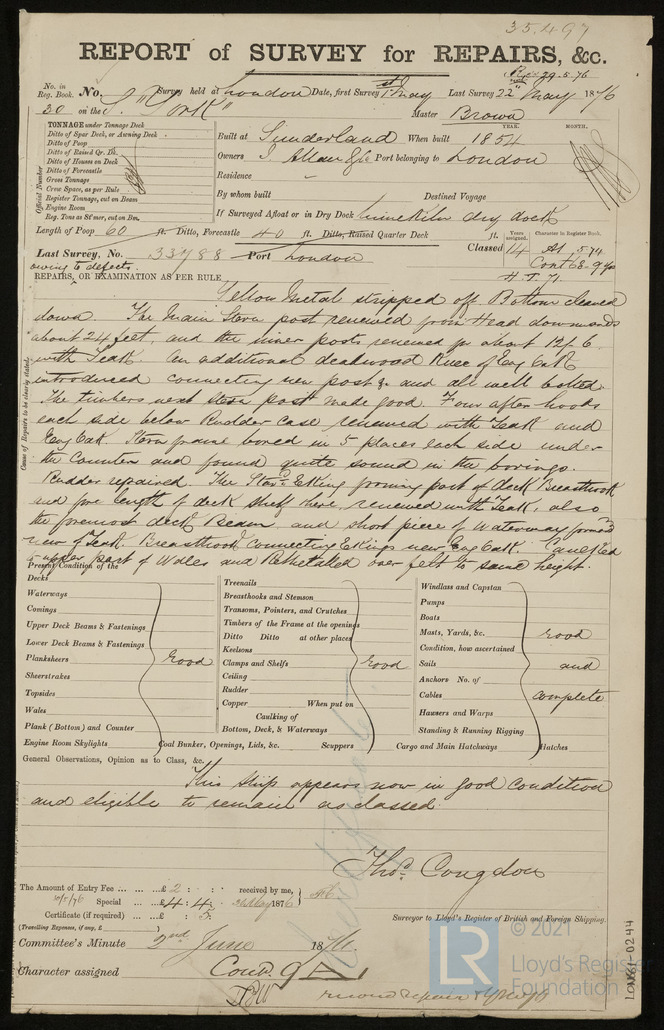 35.497
REPORT of SURVEY for REPAIRS, &c.
29.5.76
No. in Reg. Book. No. Survey held at London Date, first Survey 1st May Last Survey 22nd May 1876
30 on the S. "York" Master Brown
TONNAGE under Tonnage Deck
Ditto of Spar Deck, or Awning Deck
Ditto of Poop
Ditto of Raised Qr. Dk.
Ditto of Houses on Deck
Ditto of Forecastle
Gross Tonnage
Crew Space, as per Rule
Register Tonnage, cut on Beam
Engine Room
Reg. Tons as St'mer, cut on Bm.
Official Number
YEAR. MONTH.
Built at Sunderland When built 1854
Owners Allan & Co Port belonging to London
Residence
By whom built Destined Voyage
If Surveyed Afloat or in Dry Dock Limekiln dry dock
Length of Poop 60 ft. Ditto, Forecastle 40 ft. Ditto, Raised Quarter Deck ft.
Years assigned. Character in Register Book.
Classed 14 A1 5,74
Last Survey, No. 33788 Port London
Cont 68-9 yrs
H.T. 71.
owing to defects.
REPAIRS, or EXAMINATION AS PER RULE
Cause of Repairs to be clearly stated.
Yellow Metal stripped off. Bottom cleaned
down. The Main Stern post renewed from Head downwards
about 24 feet, and the inner posts renewed for about 12ft 6
with Teak. An additional deadwood Knee of Eng Oak
introduced connecting new post &c and all well bolted.
The timbers next Stern post made good. Four after hoods
each side below Rudder case renewed with Teak and
Eng Oak. Stern frame bored in 5 places each side under
the Counter and found quite sound in the borings.
Rudder repaired. The Starbd Ekking forming part of deck Breasthook
and fore length of deck shelf here, renewed with Teak, also
the foremost deck Beam, and short piece of Waterway forward
new of Teak. Breasthook connecting Ekkings new Eng Oak. Caulked
to upper part of Wales and Remetalled over felt to same height.
Present Condition of the
Decks
Waterways
Comings
Upper Deck Beams & Fastenings
Lower Deck Beams & Fastenings
Planksheers
Sheerstrakes
Topsides
Wales
Plank (Bottom) and Counter
Engine Room Skylights
Good
Treenails
Breasthooks and Stemson
Transoms, Pointers, and Crutches
Timbers of the Frame at the openings
Ditto Ditto at other places
Keelsons
Clamps and Shelfs
Ceiling
Rudder
Copper When put on
Caulking of
Bottom, Deck, & Waterways
Good
Windlass and Capstan
Pumps
Boats
Masts, Yards, &c.
Condition, how ascertained
Sails
Anchors No. of
Cables
Hawsers and Warps
Standing & Running Rigging
Good
and
complete
Coal Bunker, Openings, Lids, &c. Scuppers Cargo and Main Hatchways Hatches
General Observations, Opinion as to Class, &c.
This ship appears now in good condition
and eligible to remain as classed.
Certificate
Thos. Congdon
Surveyor to Lloyd's Register of British and Foreign Shipping.
The Amount of Entry Fee ... £ 2 : : received by me,
10/5/76 Special ... £ 4 : 4 . 1876
Certificate (if required) ... £ : 5 .
(Travelling Expenses, if any, £ )
Committee's Minute 2nd June 1876.
Character assigned Cont. 9 A 1
© 2021
LR
Lloyd's Register
Foundation